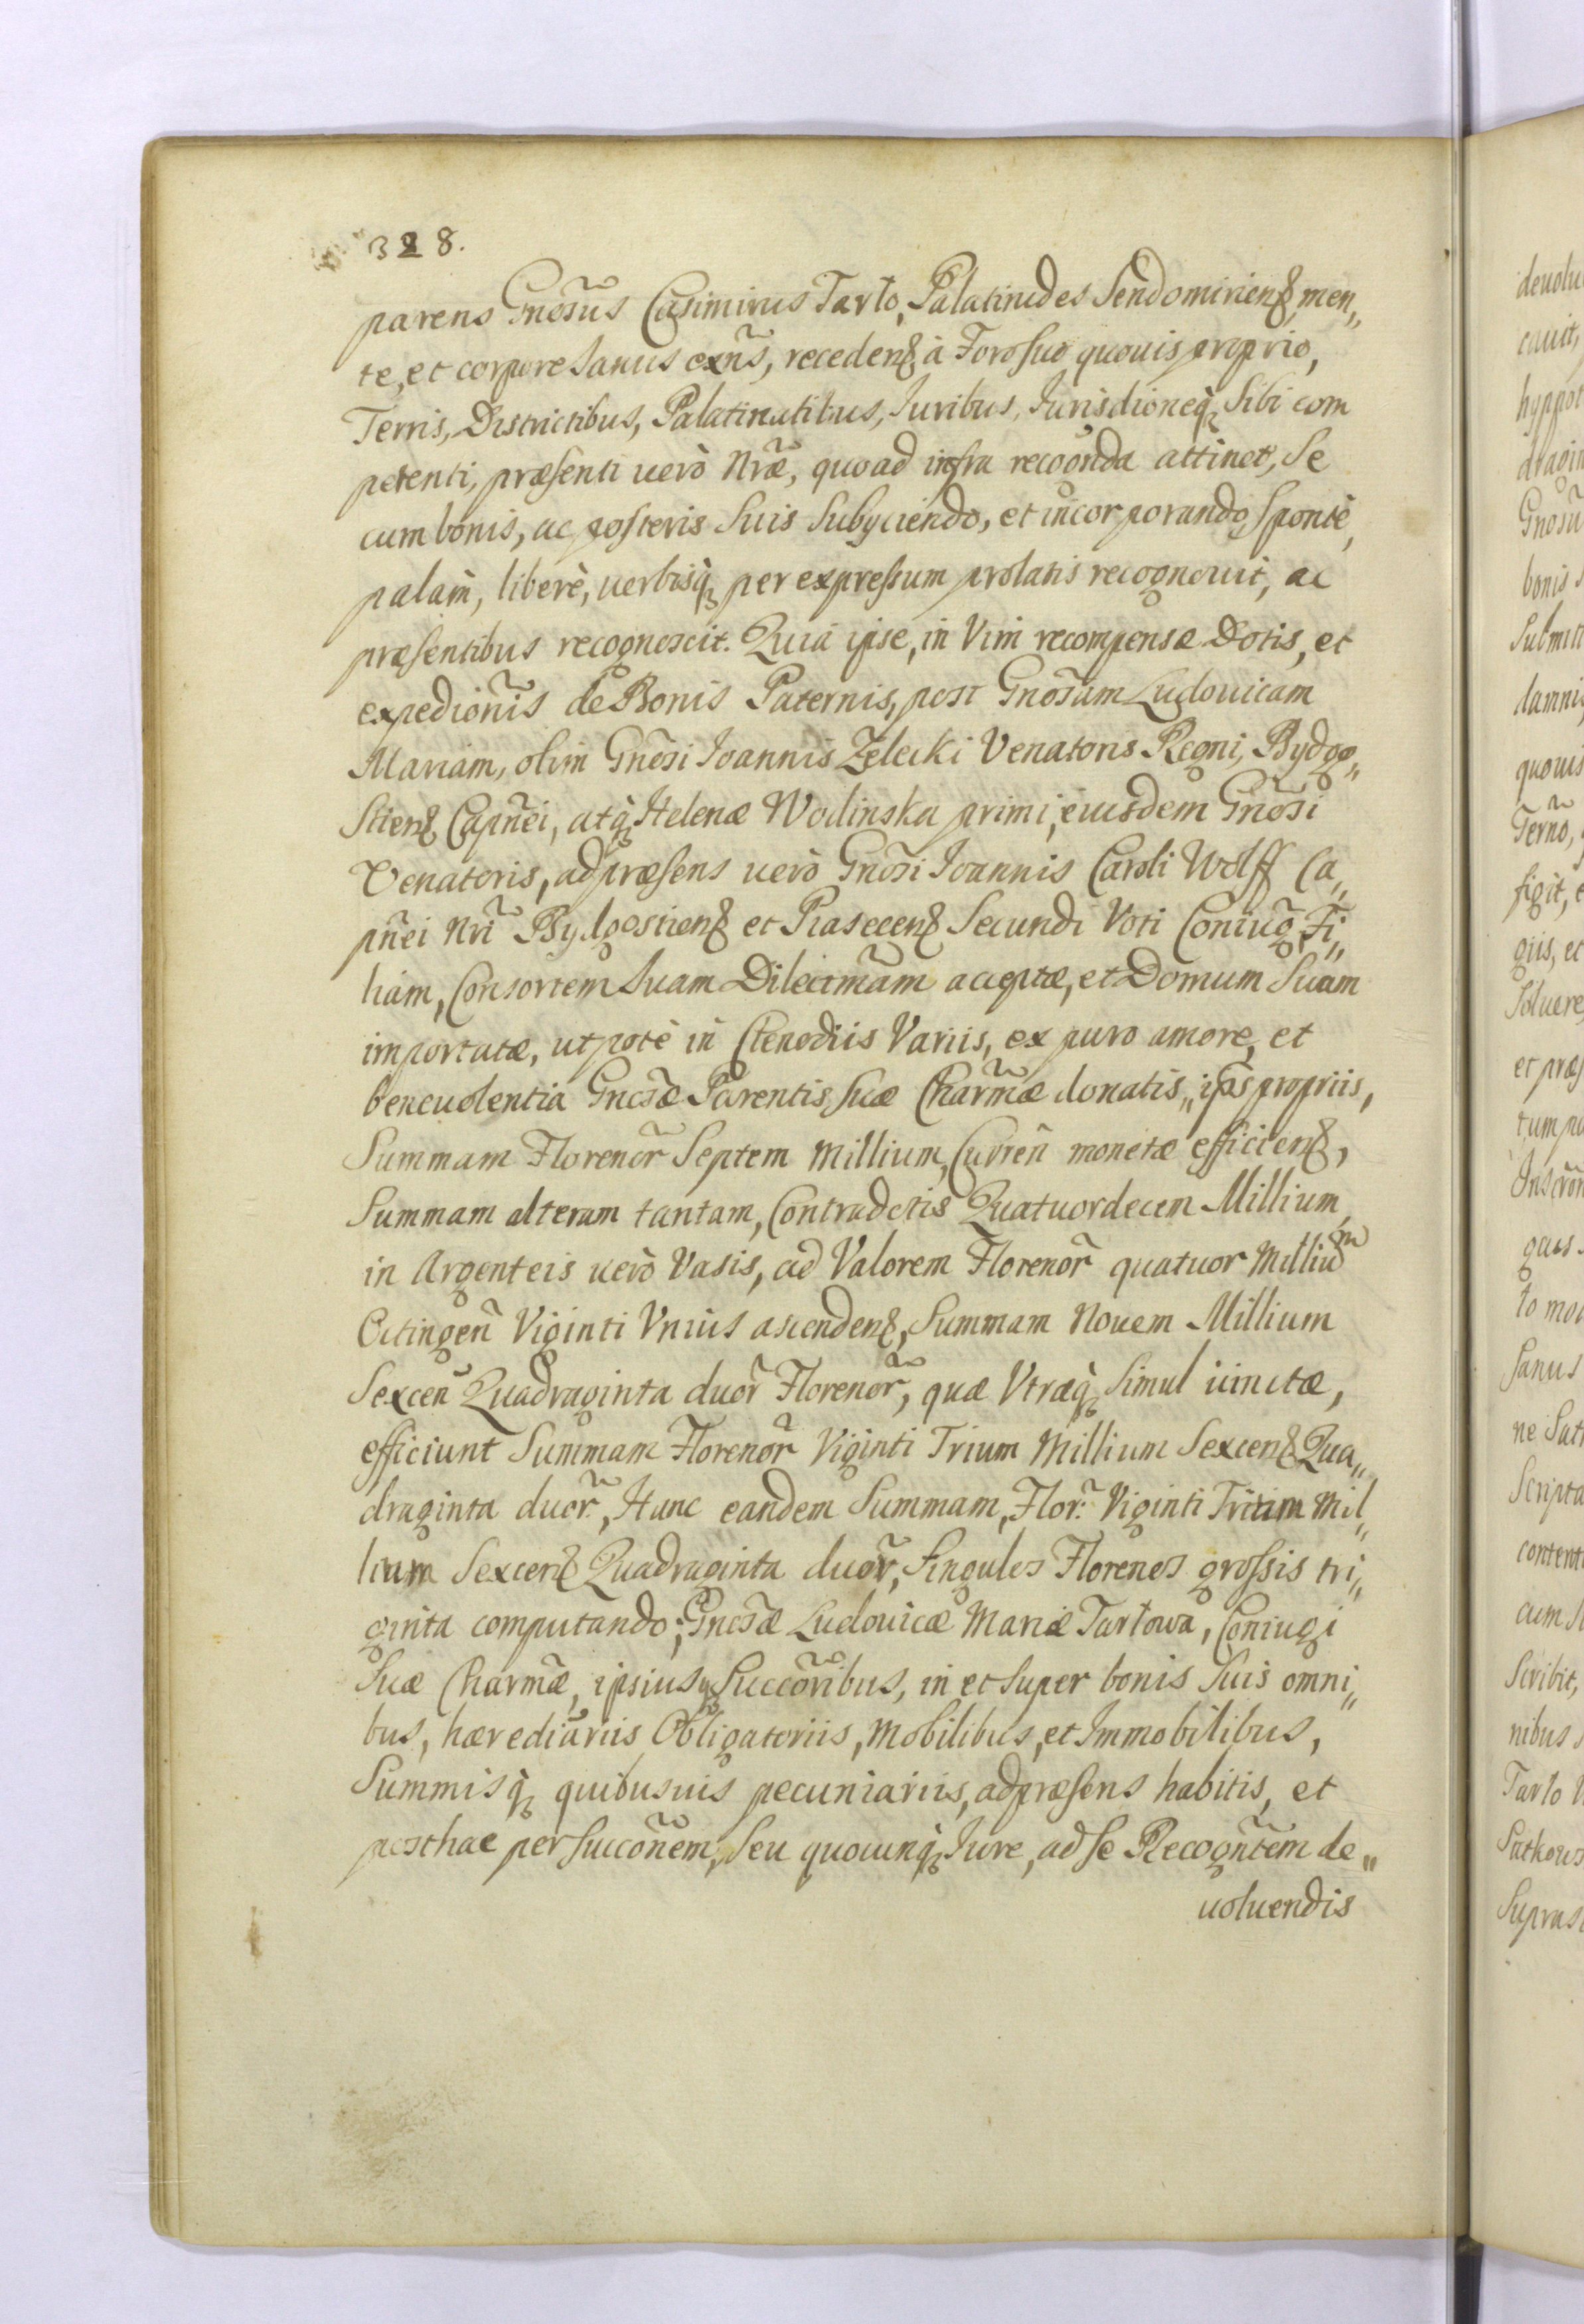 328.
parens Gnõsus Casimirus Tarło, Palatinides Sendomiriens, men„
te, et corpore sanus exñs, recedens à Foro suo quouis proprio,
Terris, Districtibus, Palatinatibus, Iuribus, Iurisdioneq̀ Sibi com
petenti, præsenti uerò Nræ, quoad infra recognda attinet, se
cum bonis, ac posteris suis subyciendo, et incorporando, sponte,
palàm, liberè, uerbisq̀ per expressum prolatis recognouit, ac
præsentibus recognoscit. Quia ipse, in Vim recompensæ Dotis, et
expedionis de Bonis Paternis, post Gnosam Ludouicam
Mariam, olim Gnosi Ioannis Zelecki Venatoris Regni, Bydgo„
stiens Capnei, atq̀ Helenæ Wodinska primi, eiusdem Gnosi
Venatoris, ad præsens uerò Gnosi Ioannis Caroli Wolff Ca„
pnei Nri Bydgostiens et Piasecens Secundi Voti Coniug, Fi„
liam, Consortem Suam Dilectmam acceptæ, et Domum Suam
importatæ, utpotè in Clenodiis Variis, ex puro amore, et
beneuolentia Gnosæ Parentis suæ Charmæ donatis, ipsis propriis,
Summam Florenor Septem Millium, Curren monetæ efficiens,
Summam alteram tantam, Contradotis Quatuordecem Millium,
in Argenteis uerò Vasis, ad Valorem Florenor quatuor Millium
Octingen Viginti Vnius ascendens, Summam Nouem Millium
Sexcen Quadraginta duor Florenor, quæ Vtræq̀ Simul iunctæ,
efficiunt Summam Florenor Viginti Trium Millium Sexcens Qua„
draginta duor, Hanc eandem Summam, Flor: Viginti Trium Mil„
lium Sexcens Quadraginta duor, Singulos Florenos grossis tri„
ginta computando; Gnosæ Ludouicæ Mariæ Tarłowa, Coniugi
Suæ Charmæ, ipsiusq̀ Succoribus, in et super bonis suis omni„
bus, hærediariis Obligatoriis, Mobilibus, et Immobilibus,
Summisq̀ quibusuis pecuniariis, ad præsens habitis, et
posthac per succonem, seu quocunq̀ Iure, ad se Recogntem de„
uoluendis